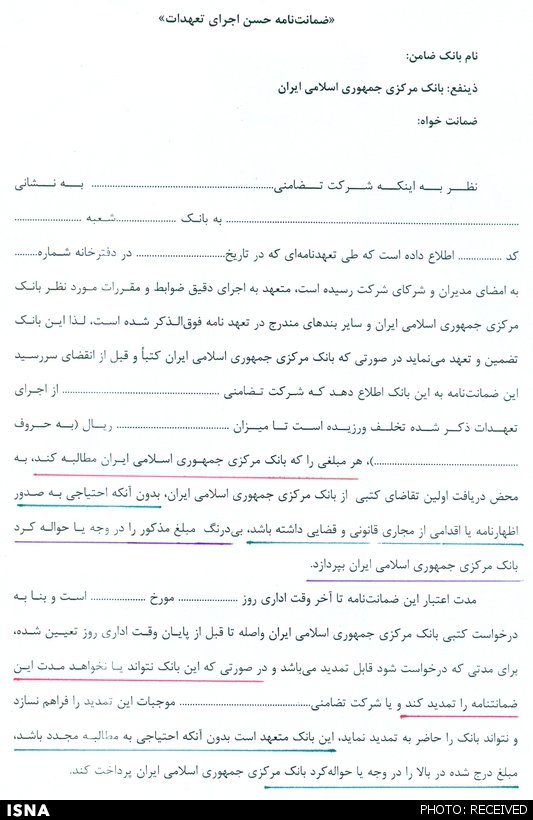 «ضمانت‌نامه حسن اجرای تعهدات»
نام بانک ضامن:
ذینفع: بانک مرکزی جمهوری اسلامی ایران
ضمانت خواه:
نظـــر بـــه اینکـــه شـــرکت تـــضامنی.................................................... بـــه نـــشانی
............................................................................ به بانک ................شعبه ..................
کد ............ اطلاع داده است که طی تعهدنامه‌ای که در تاریخ........................ در دفترخانه شماره......
به امضای مدیران و شرکای شرکت رسیده است، متعهد به اجرای دقیق ضوابط و مقررات مورد نظر بانک
مرکزی جمهوری اسلامی ایران و سایر بندهای مندرج در تعهد نامه فوق‌الذکر شده است، لذا این بانک
تضمین و تعهد می‌نماید در صورتی که بانک مرکزی جمهوری اسلامی ایران کتباً و قبل از انقضای سررسید
این ضمانت‌نامه به این بانک اطلاع دهد که شرکت تضامنی .......................................... از اجرای
تعهدات ذکر شده تخلف ورزیده است تا میزان .............................. ریال (به حروف
......................................)، هر مبلغی را که بانک مرکزی جمهوری اسلامی ایران مطالبه کند، به
محض دریافت اولین تقاضای کتبی از بانک مرکزی جمهوری اسلامی ایران، بدون آنکه احتیاجی به صدور
اظهارنامه یا اقدامی از مجاری قانونی و قضایی داشته باشد، بی‌درنگ مبلغ مذکور را در وجه یا حواله کرد
بانک مرکزی جمهوری اسلامی ایران بپردازد.
مدت اعتبار این ضمانت‌نامه تا آخر وقت اداری روز ................ مورخ ............... است و بنا به
درخواست کتبی بانک مرکزی جمهوری اسلامی ایران واصله تا قبل از پایان وقت اداری روز تعیین شده،
برای مدتی که درخواست شود قابل تمدید می‌باشد و در صورتی که این بانک نتواند یا نخواهد مدت این
ضمانتنامه را تمدید کند و یا شرکت تضامنی.................................. موجبات این تمدید را فراهم نسازد
و نتواند بانک را حاضر به تمدید نماید، این بانک متعهد است بدون آنکه احتیاجی به مطالبه مجدد باشد،
مبلغ درج شده در بالا را در وجه یا حواله‌کرد بانک مرکزی جمهوری اسلامی ایران پرداخت کند.
ISNA
PHOTO: RECEIVED